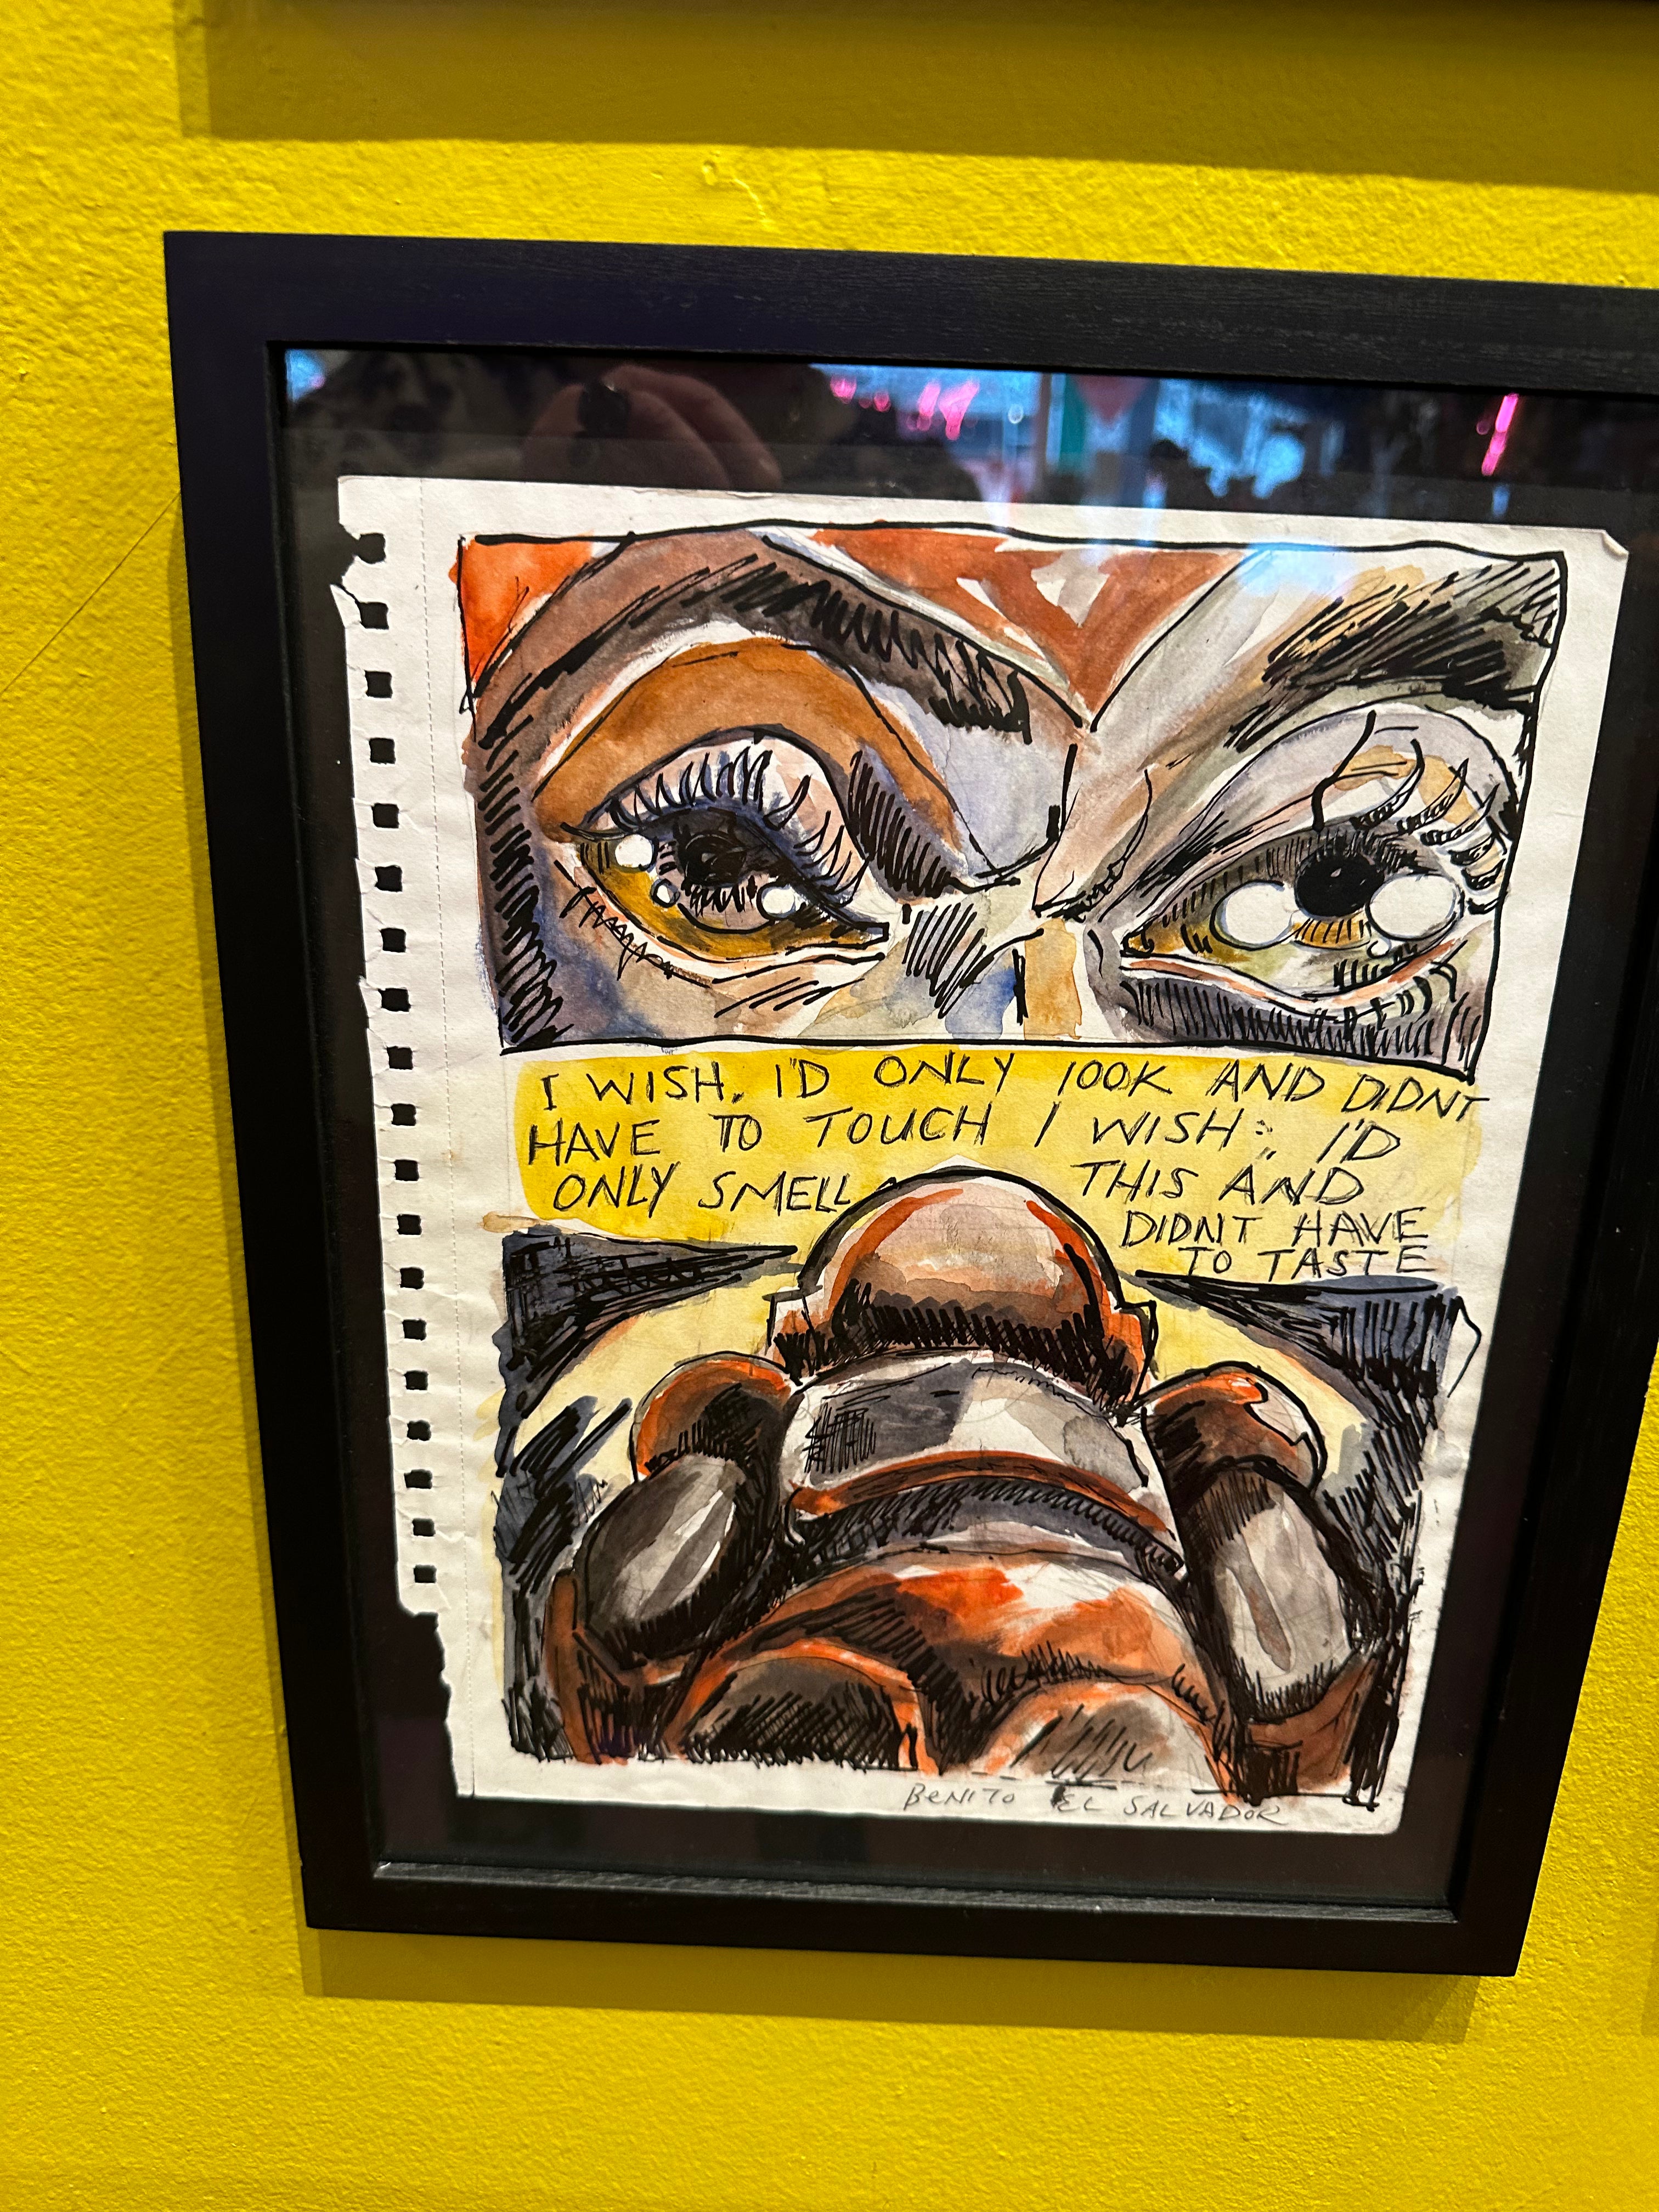 I WISH, I'D ONLY lOOK AND DIDNT
HAVE TO TOUCH I WISH: I'D
ONLY SMELL THIS AND
DIDN'T HAVE
TO TASTE
BENITO EL SALVADOR